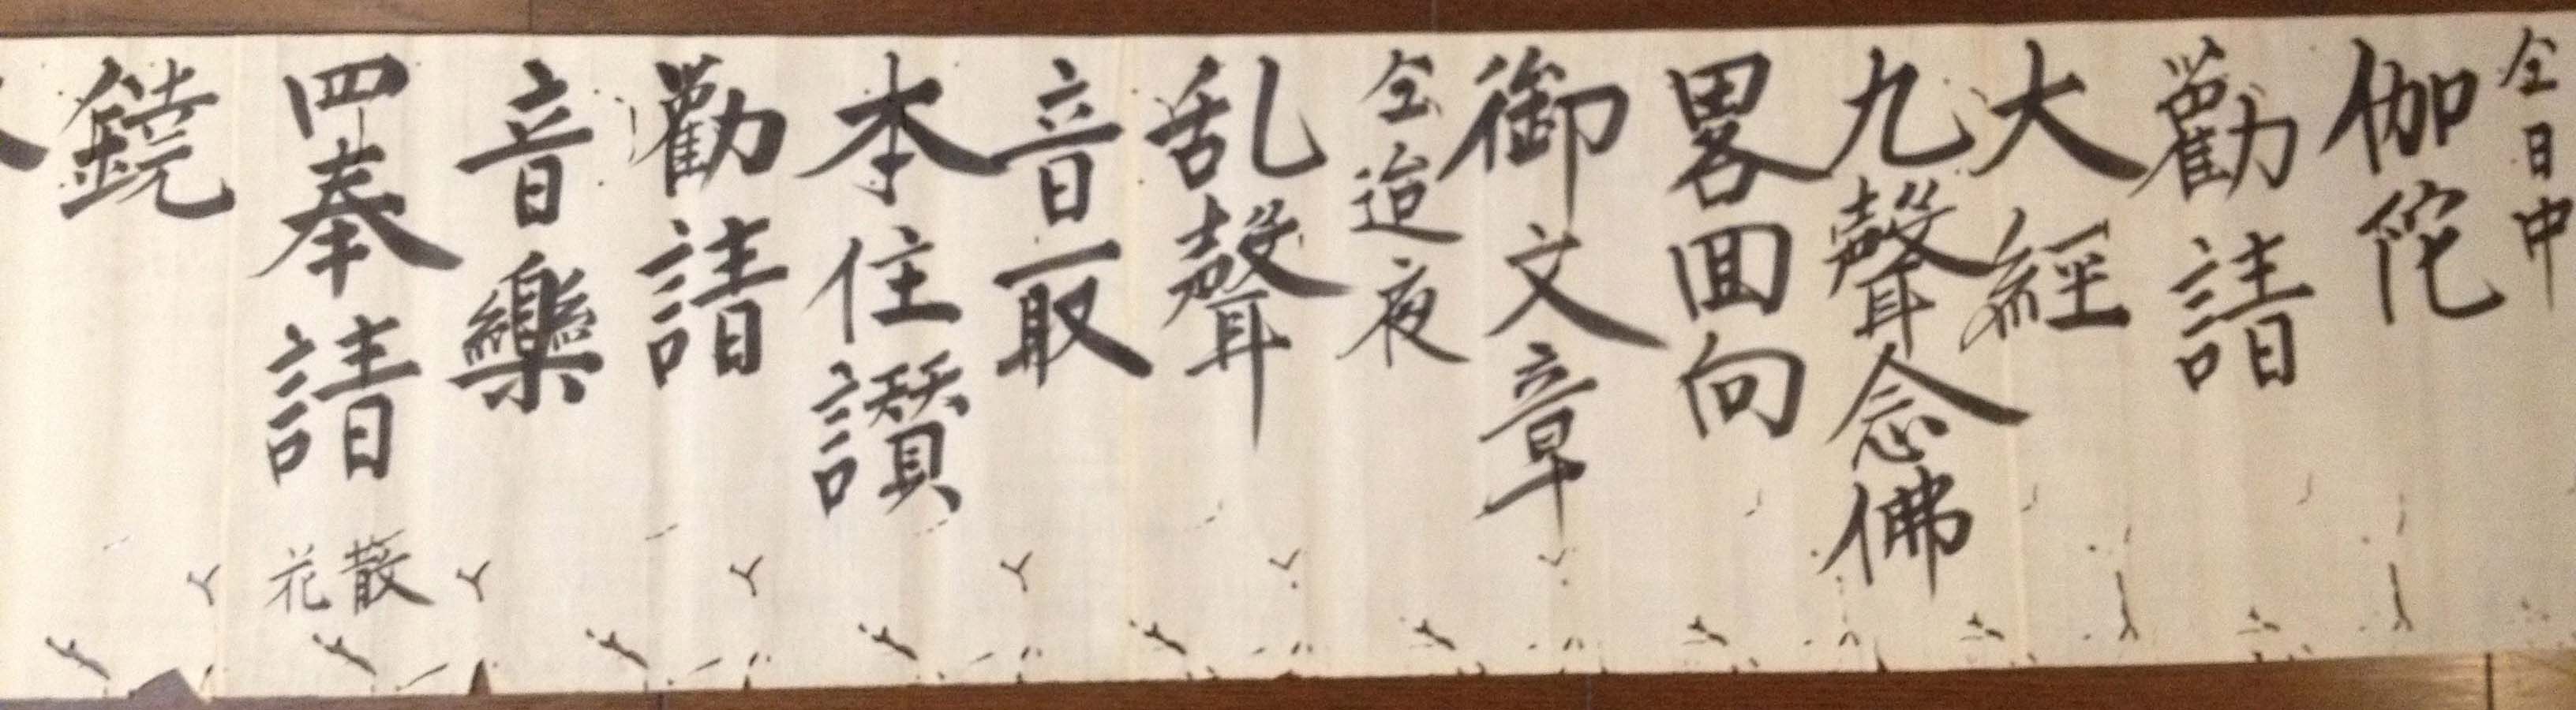 仝日中
伽陀
勸請
大經
九聲念佛
畧回向
御文章
仝逮夜
乱聲
音取
本住讃
勸請
音樂
四奉請 散花
鐃